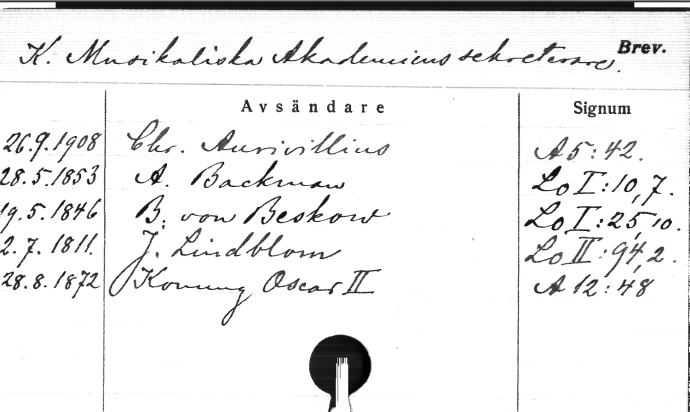 K. Musikaliska Akademiens sekreterare. Brev.
Avsändare Signum
26.9.1908 Chr. Aurivillius A5:42.
28.5.1853 A. Backman Lo I:10,7.
19.5.1846 B. von Beskow Lo I:25,10.
2.7.1811. J. Lindblom Lo II:94,2.
28.8.1872 Konung Oscar II A 12:48